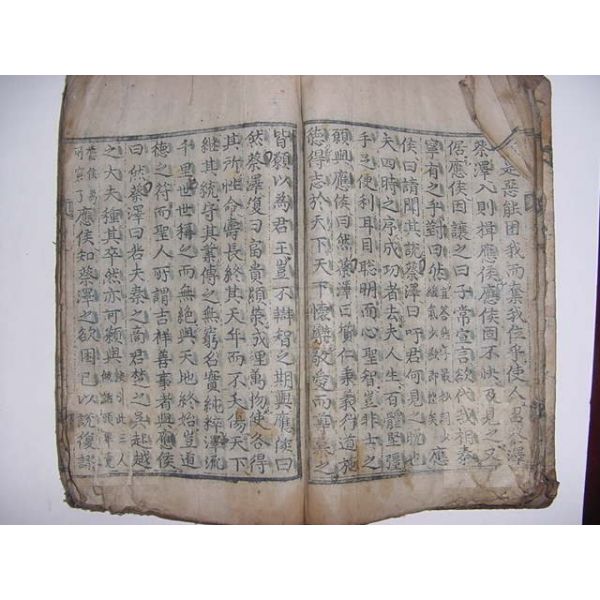 是惡能困我而奪我位乎使人召蔡澤
蔡澤入則揖應侯應侯固不快及見之又
倨應侯因讓之曰子常宣言欲代我相秦
寧有之乎對曰然應
侯曰請聞其說蔡澤曰吁君何見之晚也
夫四時之序成功者去夫人生百體堅彊
手足便利耳目聰明而心聖智豈非士之
願與應侯曰然蔡澤曰質仁秉義行道施
德得志於天下天下懷樂敬愛而尊慕之
皆願以為君王豈不辯智之期與應侯曰
然蔡澤復曰富貴顯榮成理萬物使各得
其所性命壽長終其天年而不夭傷天下
継其統守其業傳之無窮名實純粹澤流
千里世世稱之而無絕與天地終始豈道
德之符而聖人所謂吉祥善事者與應侯
曰然蔡澤曰若夫秦之商君楚之吳起越
之大夫種其卒然亦可願與引此三人
應侯知蔡澤之欲困已以說復謬